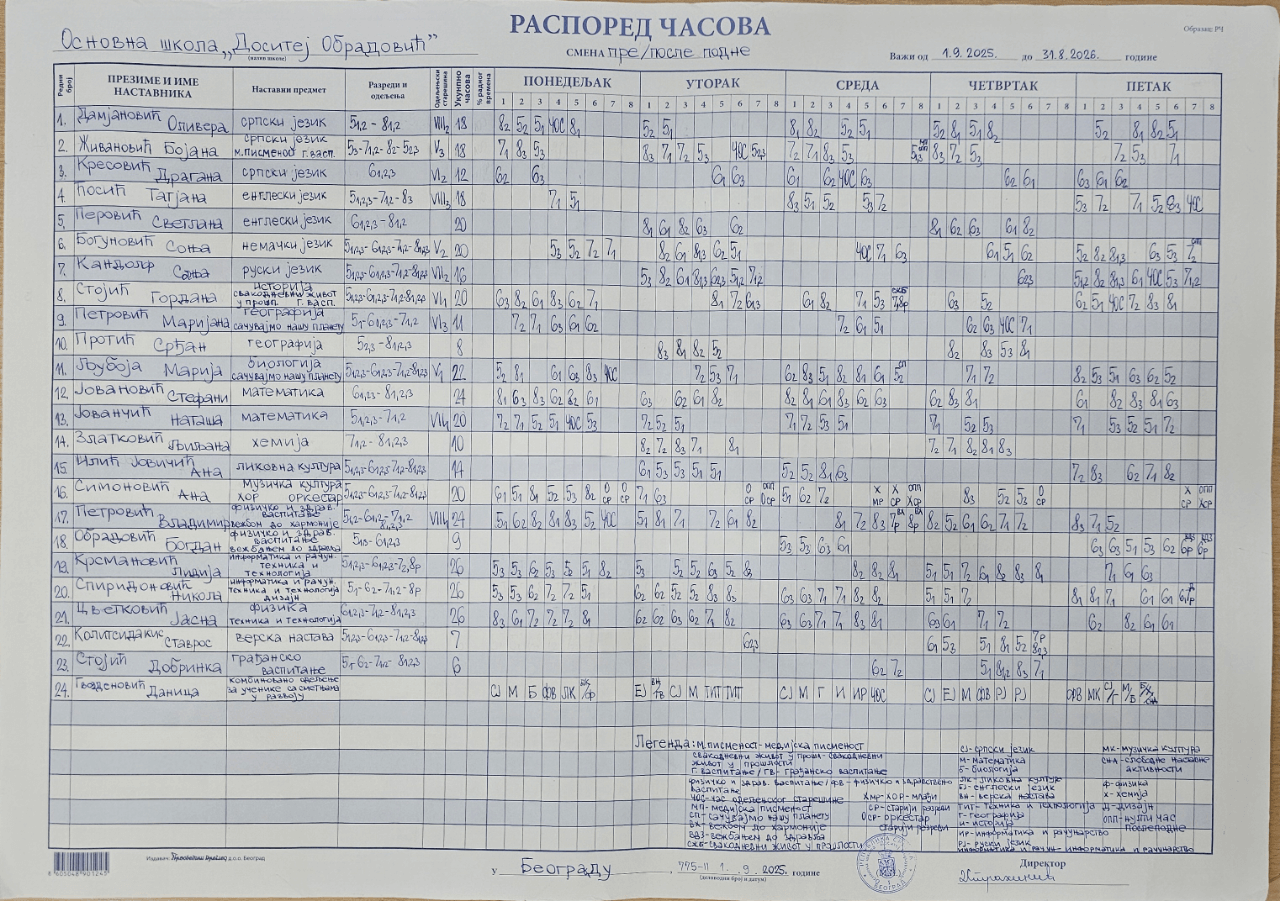 РАСПОРЕД ЧАСОВА
Образац РЧ
Основна школа „Доситеј Обрадовић”
(назив школе)
СМЕНА пре/после подне
Важи од 1.9.2025. до 31.8.2026. године
Редни број ПРЕЗИМЕ И ИМЕ НАСТАВНИКА Наставни предмет Разреди и одељења Одељењски старешина Укупно часова % радног времена ПОНЕДЕЉАК УТОРАК СРЕДА ЧЕТВРТАК ПЕТАК
1 2 3 4 5 6 7 8 1 2 3 4 5 6 7 8 1 2 3 4 5 6 7 8 1 2 3 4 5 6 7 8 1 2 3 4 5 6 7 8
1. Дамјановић Оливера српски језик 5₁,₂ - 8₁,₂ VIII₂ 18 8₂ 5₂ 5₁ ЧОС 8₁ 5₂ 5₁ 8₁ 8₂ 5₂ 5₁ 5₂ 8₁ 5₁ 8₂ 5₂ 8₁ 8₂ 5₁
2. Живановић Бојана српски језик м.писменост г.васп. V₃ 18 7₁ 8₃ 5₃ 8₃ 7₁ 7₂ 5₃ ЧОС 7₂ 7₁ 8₃ 5₃ 8₃ 7₂ 5₃ 7₂ 5₃ 7₁
3. Кресовић Драгана српски језик 6₁,₂,₃ VI₂ 12 6₂ 6₃ 6₁ 6₃ 6₁ 6₂ ЧОС 6₃ 6₂ 6₁ 6₃ 6₁ 6₂
4. Ћосић Татјана енглески језик 5₁,₂,₃ - 7₁,₂ - 8₃ VIII₃ 18 7₁ 5₁ 8₃ 5₁ 5₂ 5₃ 7₂ 5₃ 7₂ 7₁ 5₂ 8₃ ЧОС
5. Перовић Светлана енглески језик 6₁,₂,₃ - 8₁,₂ 20 8₁ 6₁ 8₂ 6₃ 6₂ 8₁ 6₂ 6₃ 6₁ 8₂
6. Богуновић Соња немачки језик 5₁,₂,₃ - 6₁,₂,₃ - 7₁,₂ - 8₁,₂,₃ V₂ 20 5₃ 5₂ 7₂ 7₁ 8₂ 6₁ 8₁,₃ 6₂ 5₁ ЧОС 7₁ 6₃ 6₁ 5₁ 6₂ 5₂ 8₂ 8₁,₃ 6₃ 5₃ 7₂
7. Кандолф Сања руски језик 5₁,₂,₃ - 6₁,₂,₃ - 7₁,₂ - 8₁,₂,₃ VII₂ 16 5₃ 8₂ 6₁ 8₁,₃ 6₂,₃ 5₁,₂ 7₁,₂ 6₂,₃ 5₁,₂ 8₂ 8₁,₃ 6₁ ЧОС 5₃ 7₁,₂
8. Стојић Гордана историја свакодневни живот у прошл. г. васп. 5₁,₂,₃ - 6₁,₂,₃ - 7₁,₂ - 8₁,₂,₃ VI₁ 20 6₃ 8₂ 6₁ 8₃ 6₂ 7₁ 8₁ 7₂ 6₁,₃ 6₁ 8₂ 7₁ 5₃ 6₃ 5₂ 6₂ 5₁ ЧОС 7₂ 8₃ 8₁
9. Петровић Маријана географија сачувајмо нашу планету 5₁ - 6₁,₂,₃ - 7₁,₂ VI₃ 11 7₂ 7₁ 6₃ 6₁ 6₂ 7₂ 6₁ 5₁ 6₂ 6₃ ЧОС 7₁
10. Протић Срђан географија 5₂,₃ - 8₁,₂,₃ 8 8₃ 8₁ 8₂ 5₂ 8₂ 8₃ 5₃ 8₁
11. Љубоја Марија биологија сачувајмо нашу планету 5₁,₂,₃ - 6₁,₂,₃ - 7₁,₂ - 8₁,₂,₃ V₁ 22 5₂ 8₁ 6₁ 6₃ 8₃ ЧОС 7₂ 5₃ 7₁ 6₂ 8₃ 5₁ 8₂ 8₁ 6₁ 7₁ 7₂ 8₂ 5₃ 5₁ 6₃ 6₂ 5₂
12. Јовановић Стефани математика 6₁,₂,₃ - 8₁,₂,₃ 24 8₁ 6₃ 8₃ 6₂ 8₂ 6₁ 6₃ 6₂ 6₁ 8₂ 8₂ 8₁ 6₁ 8₃ 6₃ 6₂ 6₂ 8₃ 8₁ 6₁ 8₂ 8₃ 8₁ 6₃
13. Јованчић Наташа математика 5₁,₂,₃ - 7₁,₂ VII₁ 20 7₂ 7₁ 5₂ 5₁ ЧОС 5₃ 7₂ 5₂ 5₁ 7₁ 7₂ 5₃ 5₁ 7₁ 5₂ 5₃ 7₁ 5₃ 5₂ 5₁ 7₂
14. Златковић Љиљана хемија 7₁,₂ - 8₁,₂,₃ 10 8₂ 7₂ 8₃ 7₁ 8₁ 7₂ 7₁ 8₂ 8₁ 8₃
15. Илић Јовичић Ана ликовна култура 5₁,₂,₃ - 6₁,₂,₃ - 7₁,₂ - 8₁,₂,₃ 14 6₁ 5₃ 5₃ 5₁ 5₁ 5₂ 5₂ 8₁ 6₃ 7₂ 8₃ 6₂ 7₁ 8₂
16. Симоновић Ана музичка култура хор оркестар 5₁,₂,₃ - 6₁,₂,₃ - 7₁,₂ - 8₁,₂,₃ 20 6₁ 5₁ 8₁ 5₂ 5₃ 8₂ О СР О СР 7₁ 6₃ О СР ОПП ОСР 5₁ 6₂ 7₂ Х МР Х СР ОПП ХСР 8₃ 5₂ 5₃ О СР Х СР ОПП ХСР
17. Петровић Владимир физичко и здрав. васпитање вежбом до хармоније VIII₁ 24 5₁ 6₂ 8₂ 8₁ 8₃ 5₂ ЧОС 5₁ 8₁ 7₁ 7₂ 6₁ 8₂ 8₁ 7₂ 8₃ 8₂ 5₂ 6₁ 6₂ 7₁ 7₂ 8₃ 7₁ 5₂
18. Обрадовић Богдан физичко и здрав. васпитање вежбањем до здравља 5₁,₃ - 6₁,₂,₃ 9 5₃ 5₃ 6₃ 6₁ 6₃ 6₃ 5₁ 5₃ 6₂
19. Крсмановић Лидија информатика и рачун. техника и технологија 26 5₃ 5₃ 6₂ 5₃ 5₂ 5₁ 8₂ 5₃ 5₂ 5₂ 6₃ 5₂ 8₃ 8₂ 8₂ 8₁ 5₁ 5₁ 7₂ 6₁ 8₃ 8₃ 8₁ 7₁ 6₁ 6₃
20. Спиридоновић Никола информатика и рачун. техника и технологија дизајн 5₁ - 6₂ - 7₁,₂ - 8р 26 5₃ 5₃ 6₂ 7₂ 7₂ 5₁ 6₂ 6₂ 5₂ 5₂ 8₃ 8₃ 6₃ 6₃ 7₁ 7₁ 8₂ 8₂ 5₁ 5₁ 7₂ 8₁ 8₁ 7₁ 6₁ 6₁
21. Цветковић Јасна физика техника и технологија 6₁,₂,₃ - 7₁,₂ - 8₁,₂,₃ 26 8₃ 6₁ 7₂ 7₂ 7₂ 8₁ 6₂ 6₂ 6₃ 6₂ 7₁ 8₂ 6₃ 6₃ 7₁ 7₁ 8₃ 8₁ 6₃ 6₁ 7₁ 7₂ 6₂ 8₂ 6₁ 6₁
22. Колитсидакис Ставрос верска настава 5₁,₂,₃ - 6₁,₂,₃ - 7₁,₂ - 8₁,₂,₃ 7 6₂,₃ 6₁ 5₃ 5₁ 8₁ 5₂
23. Стојић Добринка грађанско васпитање 5₁ - 6₂ - 7₁,₂ - 8₁,₂,₃ 6 6₂ 7₂ 5₁ 8₁,₂ 8₃ 7₁
24. Гвозденовић Даница комбиновано одељење за ученике са сметњама у развоју СЈ М Б ФВ ЛК ЕЈ СЈ М ТИТ ТИТ СЈ М Г И ИР ЧОС СЈ ЕЈ М ФВ РЈ РЈ ФВ МК СЈ/Г М/Б
Легенда: м.писменост-медијска писменост
свакодневни живот у прошл- свакодневни живот у прошлости
г. васпитање/ГВ- грађанско васпитање
физичко и здрав. васпитање/ФВ - физичко и здравствено васпитање
ЧОС-час одељенског старешине
МП-медијска писменост
СП-сачувајмо нашу планету
ВХ-вежбом до хармоније
ВДЗ-вежбањем до здравља
СЖБ-свакодневни живот у прошлости
ХМР-ХОР-млађи
СР-старији разреди
ОСР-оркестар старији разреди
СЈ-српски језик
М-математика
Б-биологија
ЛК-ликовна културе
ЕЈ-енглески језик
ВН-верска настава
ТИТ-техника и технологија
Г-географија
И-историја
ИР-информатика и рачунарство
РЈ-руски језик
информатика и рачун- информатика и рачунарство
МК-музичка култура
СНА-слободне наставне активности
Ф-физика
Х-хемија
Д-дизајн
ОПП-нулти час послеподне
Издавач: Просветни преглед д.о.о. Београд
У Београду 775-II 1.9.2025. године
(деловодни број и датум)
Директор